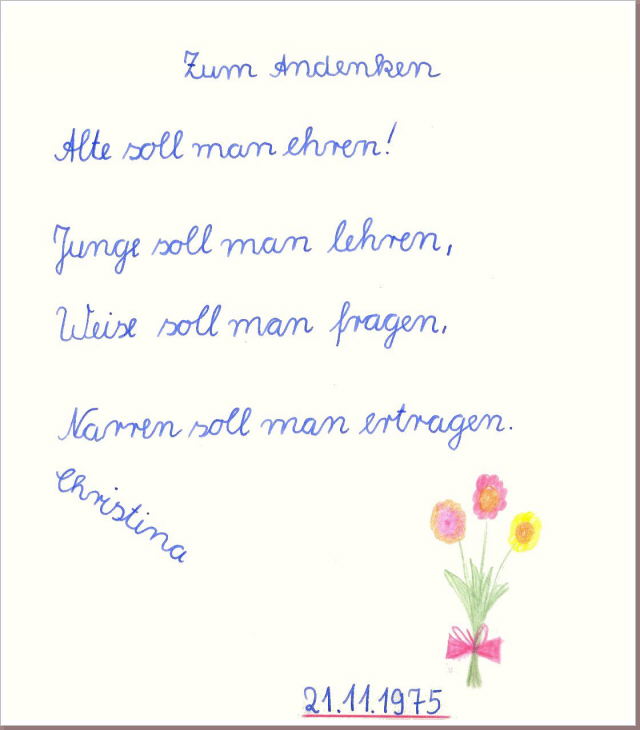 Zum Andenken
Alte soll man ehren!
Junge soll man lehren,
Weise soll man fragen,
Narren soll man ertragen.
Christina
21.11.1975